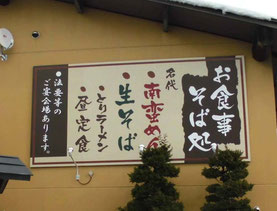 お食事
そば処
名代
・南蛮めん
・生そば
・とりラーメン
・昼定食
・法要等の
ご宴会場あります。